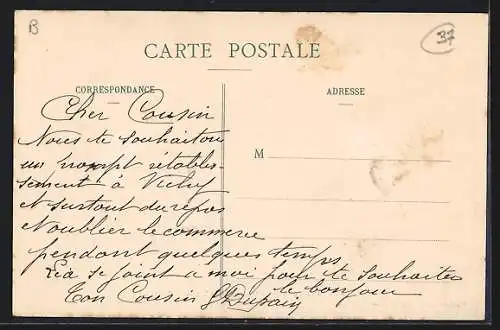 B
37
CARTE POSTALE
CORRESPONDANCE
ADRESSE
M
Cher Cousin
Nous te souhaitons
un prompt rétablis-
sement à Vichy
et surtout du repos
et oublier le commerce
pendant quelques temps
Léa se joint a moi pour te souhaiter
le bonjour
Ton Cousin